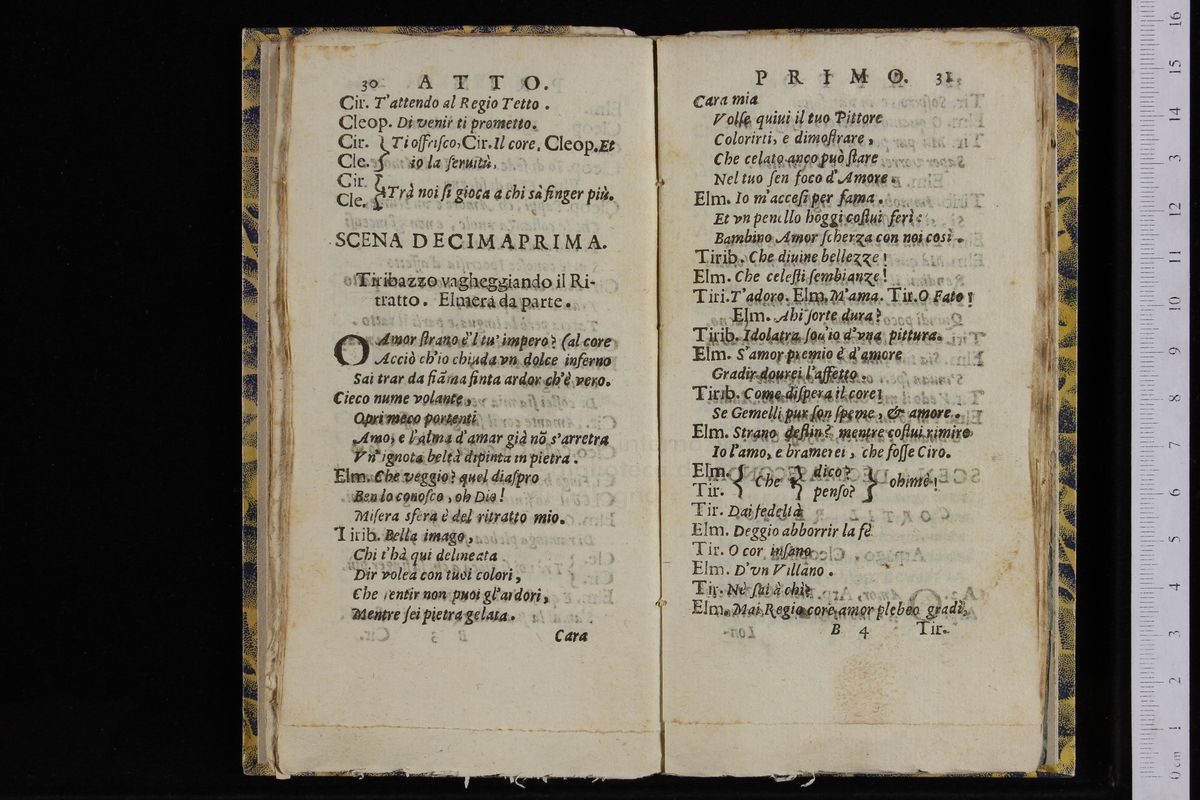 30 ATTO.
Cir. T'attendo al Regio Tetto.
Cleop. Di venir ti prometto.
Cir. } Ti offrisco, Cir. Il core. Cleop. Et
Cle. } io la seruitù.
Cir. }
Cle. } Trà noi si gioca a chi sà finger più.
SCENA DECIMAPRIMA.
Tiribazzo vagheggiando il Ri-
tratto. Elmera da parte.
O Amor strano è'l tu' impero? (al core
Acciò ch'io chiuda vn dolce inferno
Sai trar da fiãma finta ardor ch'è vero.
Cieco nume volante,
Opri meco portenti
Amo, e l'alma d'amar già nõ s'arretra
Vn' ignota beltà dipinta in pietra.
Elm. Che veggio? quel diaspro
Ben lo conosco, oh Dio!
Misera sfera è del ritratto mio.
Tirib. Bella imago,
Chi t'hà qui delineata
Dir volea con tuoi colori,
Che sentir non puoi gl'ardori,
Mentre sei pietra gelata.
B 3 Cara
PRIMO. 31
Cara mia
Volse quiui il tuo Pittore
Colorirti, e dimostrare,
Che celato anco può stare
Nel tuo sen foco d'Amore.
Elm. Io m'accesi per fama.
Et vn penello hoggi costui ferì:
Bambino Amor scherza con noi così.
Tirib. Che diuine bellezze!
Elm. Che celesti sembianze!
Tiri. T'adoro. Elm. M'ama. Tir. O Fato!
Elm. Ahi sorte dura?
Tirib. Idolatra son'io d'vna pittura.
Elm. S'amor premio è d'amore
Gradir dourei l'affetto.
Tirib. Come dispera il core!
Se Gemelli pur son speme, & amore.
Elm. Strano destin? mentre costui rimiro
Io l'amo, e bramerei, che fosse Ciro.
Elm. } Che { dico? } ohimè!
Tir. } { penso? }
Tir. Dai fedeltà
Elm. Deggio abborrir la fè
Tir. O cor insano
Elm. D'vn Villano.
Tir. Nè sai à chi?
Elm. Mai Regio core amor plebeo gradì,
B 4 Tir.